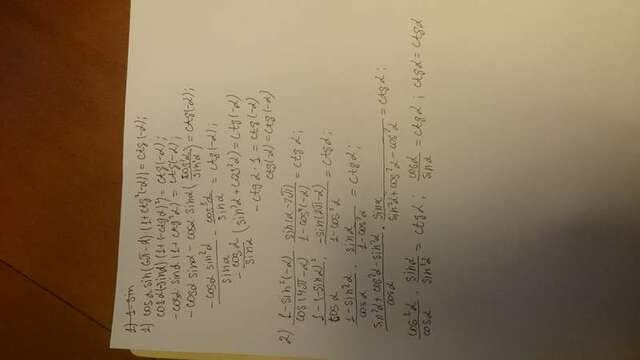 1) 1-sin
1) cosα sin(6π-α)(1+ctg²(-α))=ctg(-α);
cosα(-sinα)(1+(-ctgα)²)=ctg(-α);
-cosα sinα(1+ctg²α)=ctg(-α);
-cosα sinα - cosα sinα(cos²α/sin²α)=ctg(-α);
-cosα sin²α/sinα - cos³α/sinα = ctg(-α);
-cosα/sinα (sin²α+cos²α)=ctg(-α)
-ctgα·1=ctg(-α)
ctg(-α)=ctg(-α)
2) 1-sin²(-α)/cos(4π-α) · sin(α-2π)/1-cos²(-α) = ctgα;
1-(-sinα)²/cosα · -sin(2π-α)/1-cos²α = ctgα;
1-sin²α/cosα · sinα/1-cos²α = ctgα;
sin²α+cos²α-sin²α/cosα · sinα/sin²α+cos²α-cos²α = ctgα;
cos²α/cosα · sinα/sin²α = ctgα; cosα/sinα = ctgα; ctgα=ctgα